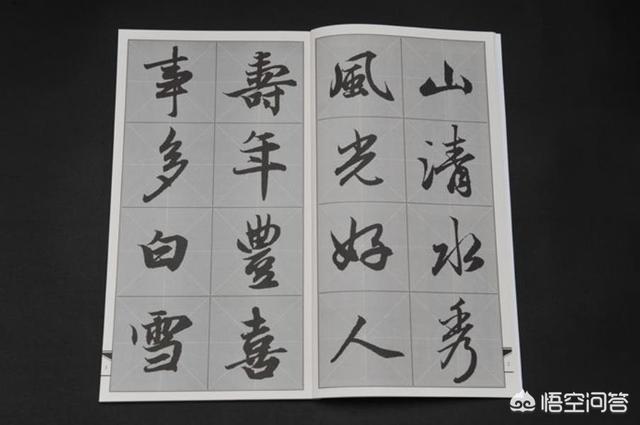 山清水秀
風光好人
壽年豐喜
事多白雪
悟空问答